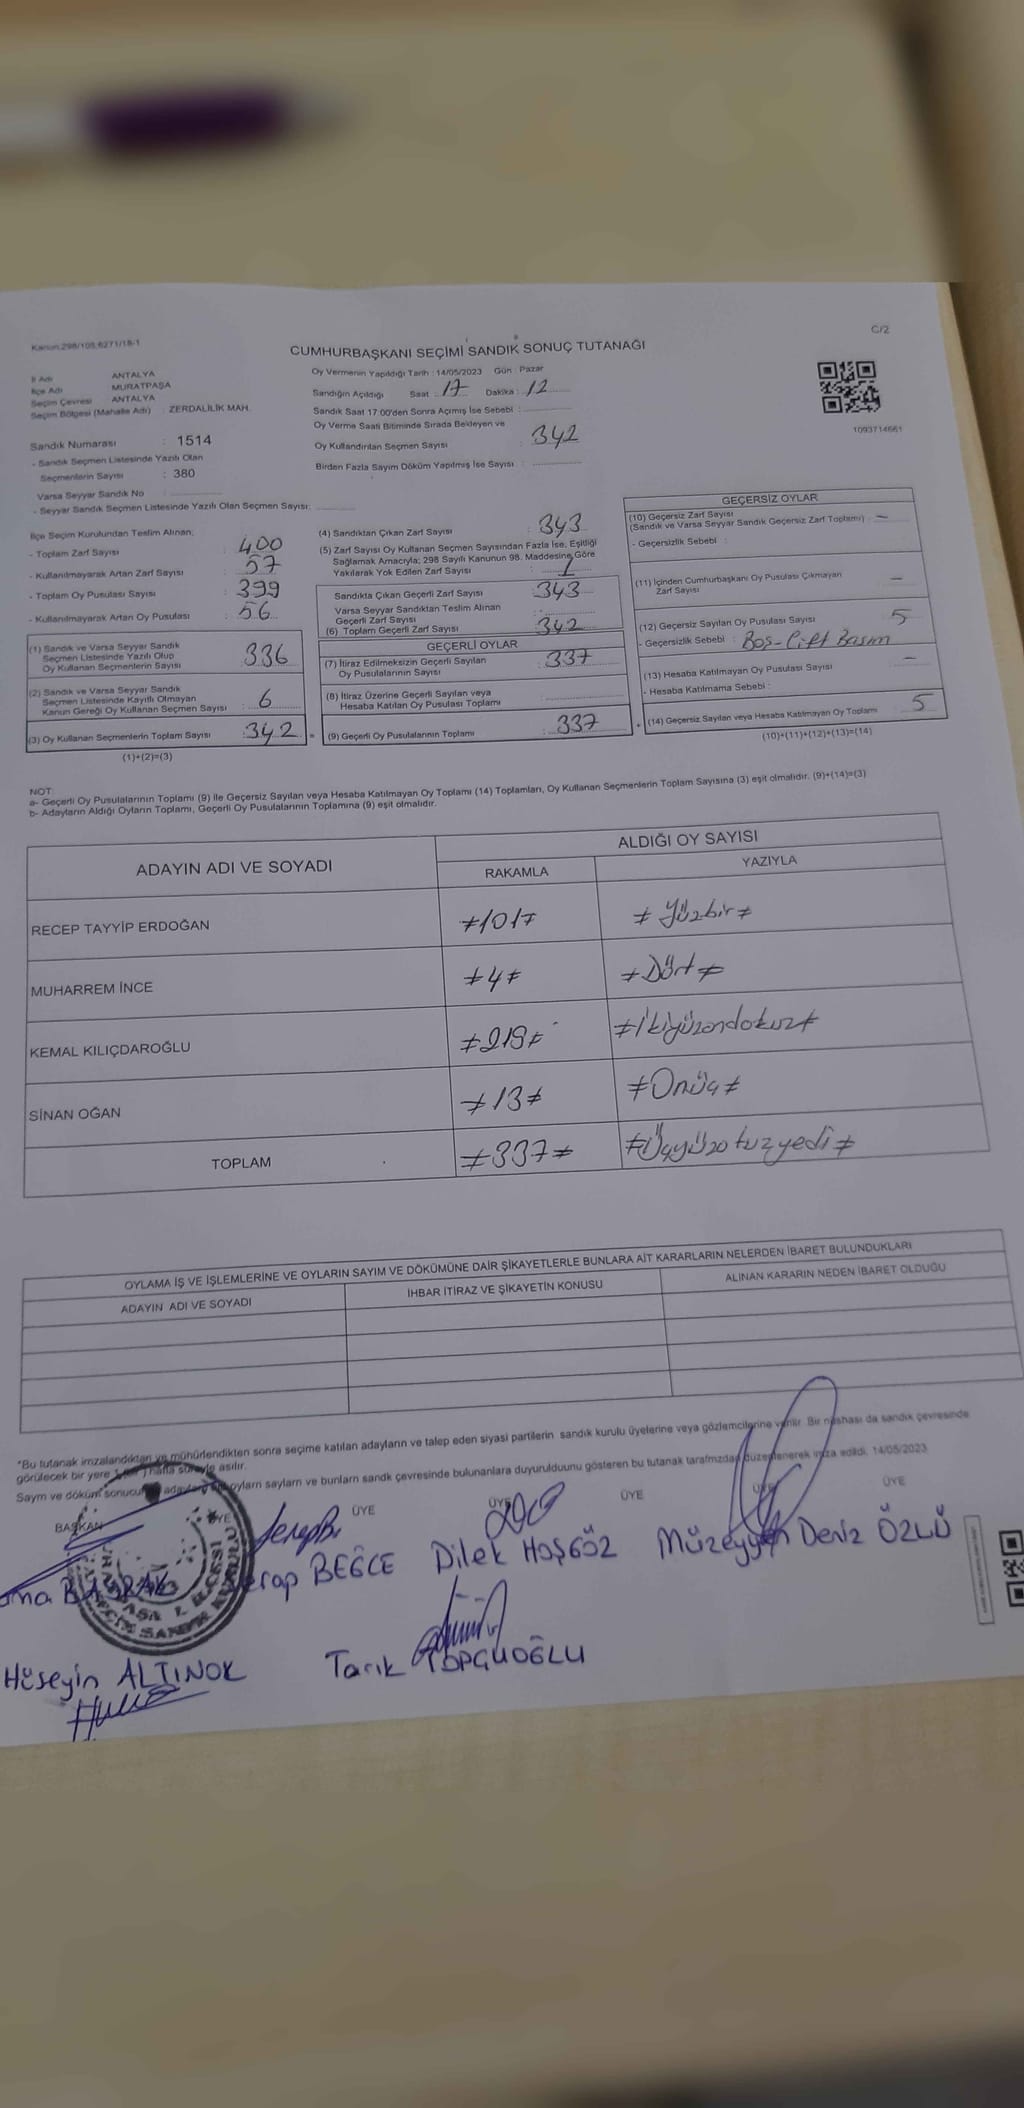 Kanun:298/105,6271/18-1
C/2
CUMHURBAŞKANI SEÇİMİ SANDIK SONUÇ TUTANAĞI
İl Adı ANTALYA
İlçe Adı MURATPAŞA
Seçim Çevresi ANTALYA
Seçim Bölgesi (Mahalle Adı) : ZERDALİLİK MAH.
Sandık Numarası : 1514
- Sandık Seçmen Listesinde Yazılı Olan
Seçmenlerin Sayısı : 380
Varsa Seyyar Sandık No :
- Seyyar Sandık Seçmen Listesinde Yazılı Olan Seçmen Sayısı:
Oy Vermenin Yapıldığı Tarih : 14/05/2023 Gün : Pazar
Sandığın Açıldığı Saat : 17 Dakika : 12
Sandık Saat 17:00'den Sonra Açmış İse Sebebi :
Oy Verme Saati Bitiminde Sırada Bekleyen ve
Oy Kullandırılan Seçmen Sayısı : 342
Birden Fazla Sayım Döküm Yapılmış İse Sayısı :
1093714661
İlçe Seçim Kurulundan Teslim Alınan;
- Toplam Zarf Sayısı : 400
- Kullanılmayarak Artan Zarf Sayısı : 57
- Toplam Oy Pusulası Sayısı : 399
- Kullanılmayarak Artan Oy Pusulası : 56
(1) Sandık ve Varsa Seyyar Sandık
Seçmen Listesinde Yazılı Olup
Oy Kullanan Seçmenlerin Sayısı 336
(2) Sandık ve Varsa Seyyar Sandık
Seçmen Listesinde Kayıtlı Olmayan
Kanun Gereği Oy Kullanan Seçmen Sayısı : 6
(3) Oy Kullanan Seçmenlerin Toplam Sayısı :342 =
(1)+(2)=(3)
(4) Sandıktan Çıkan Zarf Sayısı : 343
(5) Zarf Sayısı Oy Kullanan Seçmen Sayısından Fazla İse, Eşitliği
Sağlamak Amacıyla; 298 Sayılı Kanunun 98. Maddesine Göre
Yakılarak Yok Edilen Zarf Sayısı : 1
Sandıkta Çıkan Geçerli Zarf Sayısı : 343
Varsa Seyyar Sandıktan Teslim Alınan
Geçerli Zarf Sayısı :
(6) Toplam Geçerli Zarf Sayısı : 342
GEÇERLİ OYLAR
(7) İtiraz Edilmeksizin Geçerli Sayılan
Oy Pusulalarının Sayısı : 337
(8) İtiraz Üzerine Geçerli Sayılan veya
Hesaba Katılan Oy Pusulası Toplamı :
(9) Geçerli Oy Pusulalarının Toplamı : 337 +
GEÇERSİZ OYLAR
(10) Geçersiz Zarf Sayısı
(Sandık ve Varsa Seyyar Sandık Geçersiz Zarf Toplamı) : –
- Geçersizlik Sebebi :
(11) İçinden Cumhurbaşkanı Oy Pusulası Çıkmayan
Zarf Sayısı –
(12) Geçersiz Sayılan Oy Pusulası Sayısı 5
- Geçersizlik Sebebi : Boş-Çift Basım
(13) Hesaba Katılmayan Oy Pusulası Sayısı –
- Hesaba Katılmama Sebebi :
(14) Geçersiz Sayılan veya Hesaba Katılmayan Oy Toplamı 5
(10)+(11)+(12)+(13)=(14)
NOT:
a- Geçerli Oy Pusulalarının Toplamı (9) ile Geçersiz Sayılan veya Hesaba Katılmayan Oy Toplamı (14) Toplamları, Oy Kullanan Seçmenlerin Toplam Sayısına (3) eşit olmalıdır. (9)+(14)=(3)
b- Adayların Aldığı Oyların Toplamı, Geçerli Oy Pusulalarının Toplamına (9) eşit olmalıdır.
ADAYIN ADI VE SOYADI
ALDIĞI OY SAYISI
RAKAMLA YAZIYLA
RECEP TAYYİP ERDOĞAN ≠101≠ ≠ Yüzbir ≠
MUHARREM İNCE ≠4≠ ≠Dört≠
KEMAL KILIÇDAROĞLU ≠219≠ ≠İkiyüzondokuz≠
SİNAN OĞAN ≠13≠ ≠Onüç≠
TOPLAM ≠337≠ ≠Üçyüzotuzyedi≠
OYLAMA İŞ VE İŞLEMLERİNE VE OYLARIN SAYIM VE DÖKÜMÜNE DAİR ŞİKAYETLERLE BUNLARA AİT KARARLARIN NELERDEN İBARET BULUNDUKLARI
ADAYIN ADI VE SOYADI İHBAR İTİRAZ VE ŞİKAYETİN KONUSU ALINAN KARARIN NEDEN İBARET OLDUĞU
*Bu tutanak imzalandıktan ve mühürlendikten sonra seçime katılan adayların ve talep eden siyasi partilerin sandık kurulu üyelerine veya gözlemcilerine verilir. Bir nüshası da sandık çevresinde
görülecek bir yere hafta süreyle asılır.
Sayım ve döküm sonucu adayların oyların sayları ve bunların sandık çevresinde bulunanlara duyurulduunu gösteren bu tutanak tarafımızdan düzenlenerek imza edildi. 14/05/2023
BAŞKAN ÜYE ÜYE ÜYE ÜYE ÜYE ÜYE
BAŞRAK Serap BEĞCE Dilek HOŞGÖZ Müzeyyen Deniz ÖZLÜ
Hüseyin ALTINOK Tarık TOPÇUOĞLU